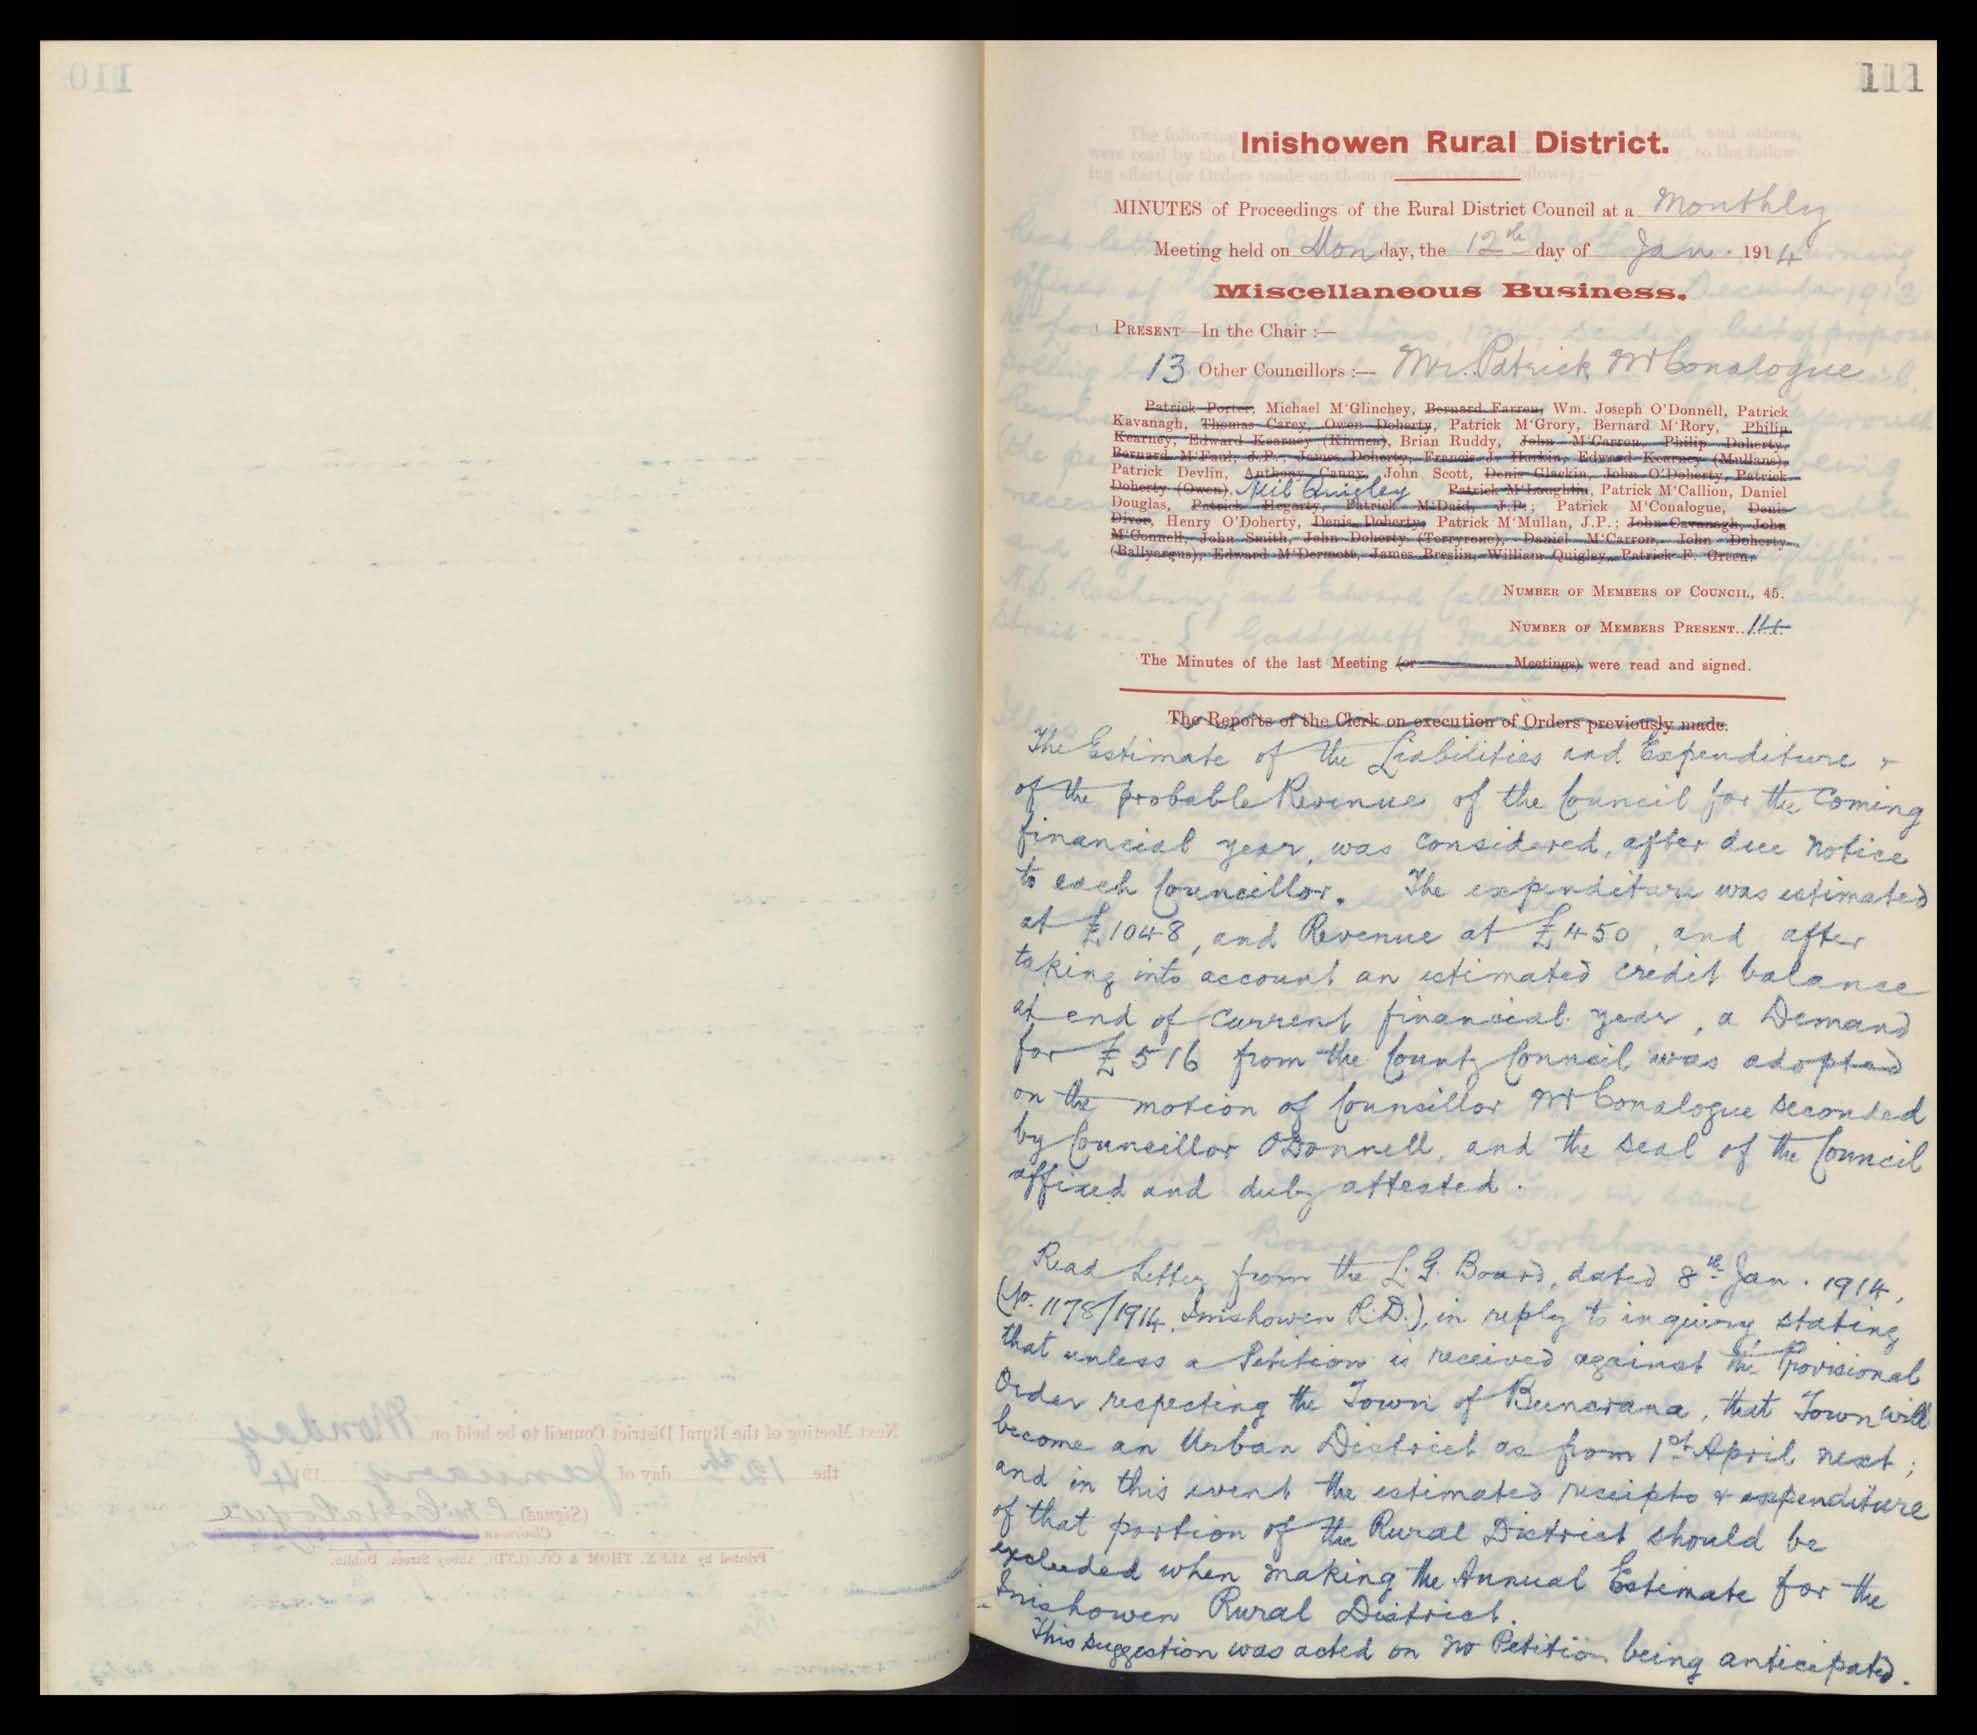 111
Inishowen Rural District.
MINUTES of Proceedings of the Rural District Council at a Monthly
Meeting held on Monday, the 12th day of Jan. 1914
Miscellaneous Business.
PRESENT—In the Chair :—
13 Other Councillors :— Mr. Patrick McConalogue
Patrick Porter, Michael M'Glinchey, Bernard Farren, Wm. Joseph O'Donnell, Patrick
Kavanagh, Thomas Carey, Owen Doherty, Patrick M'Grory, Bernard M'Rory, Philip
Kearney, Edward Kearney (Kinnea), Brian Ruddy, John M'Carron, Philip Doherty,
Bernard M'Faul, J.P.; James Doherty, Francis J. Harkin, Edward Kearney (Mullans),
Patrick Devlin, Anthony Canny, John Scott, Denis Glackin, John O'Doherty, Patrick
Doherty (Owen), Neil Quigley Patrick M'Laughlin, Patrick M'Callion, Daniel
Douglas, Patrick Hegarty, Patrick M'Daid, J.P.; Patrick M'Conalogue, Denis
Diver, Henry O'Doherty, Denis Doherty, Patrick M'Mullan, J.P.; John Cavanagh, John
M'Connell, John Smith, John Doherty (Terryrone), Daniel M'Carron, John Doherty
(Ballyargus), Edward M'Dermott, James Breslin, William Quigley, Patrick F. Green.
NUMBER OF MEMBERS OF COUNCIL, 45.
NUMBER OF MEMBERS PRESENT.. 14
The Minutes of the last Meeting (or Meetings) were read and signed.
The Reports of the Clerk on execution of Orders previously made.
The Estimate of the Liabilities and Expenditure &
of the probable Revenue of the Council for the coming
financial year, was considered, after due notice
to each Councillor. The expenditure was estimated
at £1048, and Revenue at £450, and after
taking into account an estimated credit balance
at end of current financial year, a Demand
for £516 from the County Council was adopted
on the motion of Councillor McConalogue seconded
by Councillor O'Donnell, and the seal of the Council
affixed and duly attested.
Read Letter from the L. G. Board, dated 8th Jan. 1914,
(No. 1178/1914, Inishowen R.D.), in reply to inquiry, stating
that unless a Petition is received against the Provisional
Order respecting the Town of Buncrana, that Town will
become an Urban District as from 1st April next;
and in this event the estimated receipts & expenditure
of that portion of the Rural District should be
excluded when making the Annual Estimate for the
Inishowen Rural District.
This suggestion was acted on no Petition being anticipated.